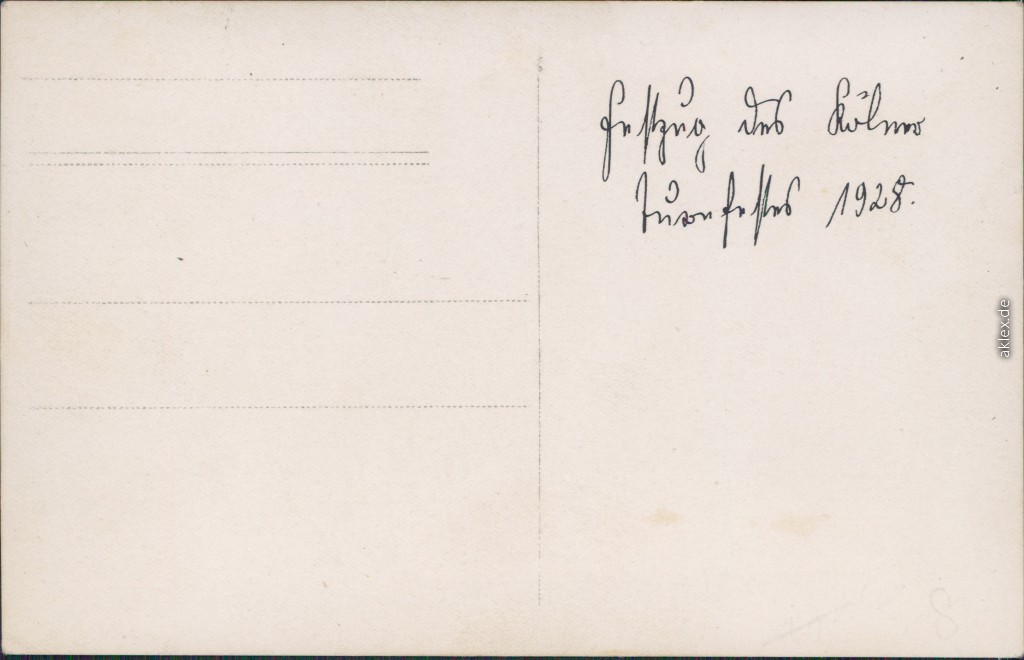 Festzug des Kölner
Turnfestes 1928.
aklex.de